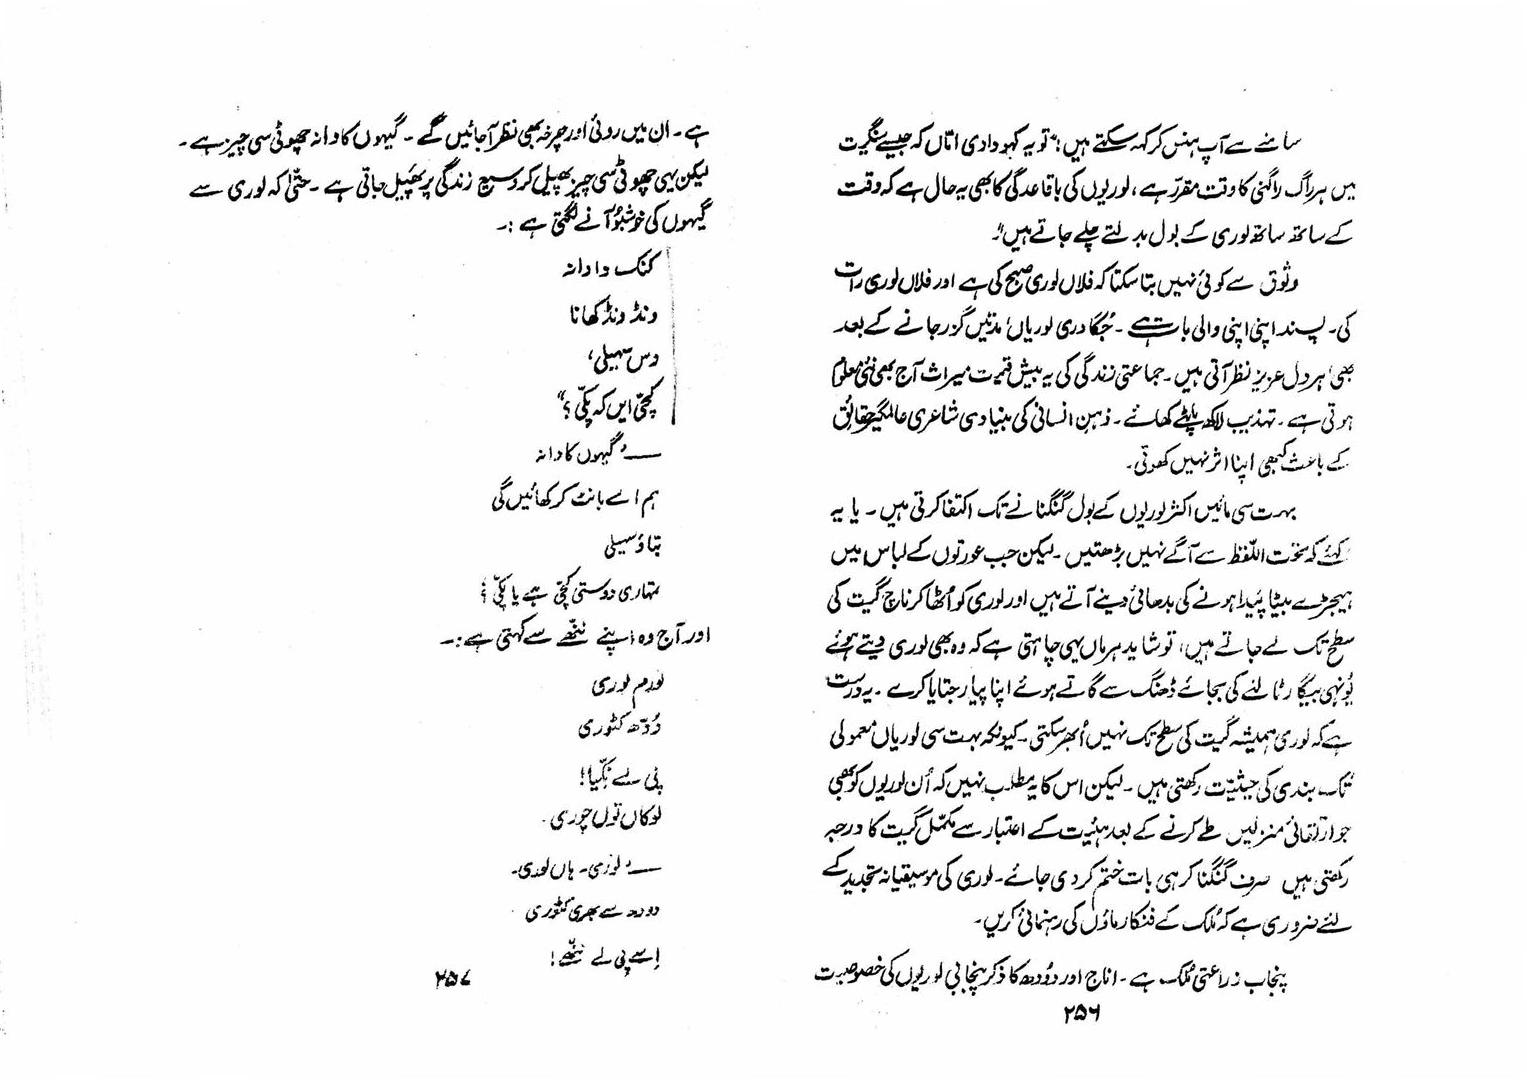 سامنے سے آپ ہنس کر کہہ سکتے ہیں؛ "تو یہ کہو دادی اماں کہ جیسے سنگیت
میں ہر راگ راگنی کا وقت مقرر ہے، لوریوں کی باقاعدگی کا بھی یہ حال ہے کہ وقت
کے ساتھ ساتھ لوری کے بول بدلتے چلے جاتے ہیں"۔
وثوق سے کوئی نہیں بتا سکتا کہ فلاں لوری صبح کی ہے اور فلاں لوری رات
کی۔ پسند اپنی اپنی والی بات ہے۔ جُگادری لوریاں مدتیں گزر جانے کے بعد
بھی ہر دل عزیز نظر آتی ہیں۔ جماعتی زندگی کی یہ بیش قیمت میراث آج بھی نئی معلوم
ہوتی ہے۔ تہذیب لاکھ پلٹے کھائے۔ ذہن انسانی کی بنیادی شاعری عالمگیر حقائق
کے باعث کبھی اپنا اثر نہیں کھوتی۔
بہت سی مائیں اکثر لوریوں کے بول گنگنانے تک اکتفا کرتی ہیں۔ یا یہ
کہئے کہ تحت اللّفظ سے آگے نہیں بڑھتیں۔ لیکن جب عورتوں کے لباس میں
ہیجڑے بیٹا پیدا ہونے کی بدھائی دینے آتے ہیں اور لوری کو اُٹھا کر ناچ گیت کی
سطح تک لے جاتے ہیں، تو شاید ہر ماں یہی چاہتی ہے کہ وہ بھی لوری دیتے ہوئے
یُونہی بیگار ٹالنے کی بجائے ڈھنگ سے گاتے ہوئے اپنا پیار جتایا کرے۔ یہ درست
ہے کہ لوری ہمیشہ گیت کی سطح تک نہیں اُبھر سکتی۔ کیونکہ بہت سی لوریاں معمولی
تُک بندی کی حیثیّت رکھتی ہیں۔ لیکن اس کا یہ مطلب نہیں کہ اُن لوریوں کو بھی
جو ارتقائی منزلیں طے کرنے کے بعد ہئیت کے اعتبار سے مکمّل گیت کا درجہ
رکھتی ہیں صرف گنگنا کر ہی بات ختم کر دی جائے۔ لوری کی موسیقیانہ تجدید کے
لئے ضروری ہے کہ مُلک کے فنکار ماؤں کی رہنمائی کریں۔
پنجاب زراعتی مُلک ہے۔ اناج اور دُودھ کا ذکر پنجابی لوریوں کی خصوصیت
۲۵۶
ہے۔ ان میں روئی اور چرخہ بھی نظر آجائیں گے۔ گیہوں کا دانہ چھوٹی سی چیز ہے۔
لیکن یہی چھوٹی سی چیز پھیل کر وسیع زندگی پر پھیل جاتی ہے۔ حتّیٰ کہ لوری سے
گیہوں کی خوشبُو آنے لگتی ہے:۔
کنک دا دانہ
ونڈ ونڈ کھانا
دس سہیلی،
کچّی ایں کہ پکّی؟"
—— ’گیہوں کا دانہ
ہم اسے بانٹ کر کھائیں گی
بتاؤ سہیلی
تمہاری دوستی کچّی ہے یا پکّی؟
اور آج وہ اپنے ننّھے سے کہتی ہے:۔
لورم لوری
دُدّھ کٹوری
پی لے نِکّیا!
لوکاں توں چوری۔
—— ’لوری۔ ہاں لوری۔
دودھ سے بھری کٹوری
اِسے پی لے ننّھے!
۲۵۷